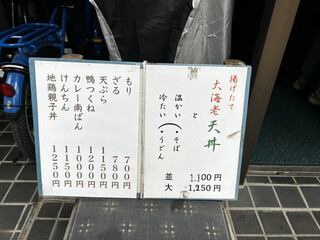 揚げたて
大海老天丼
と
温かい
冷たい
そば
うどん
並 1,100円
大 1,250円
もり 700円
ざる 780円
天ぷら 1150円
鴨つくね 1200円
カレー南ばん 1000円
けんちん 1150円
地鶏親子丼 1250円